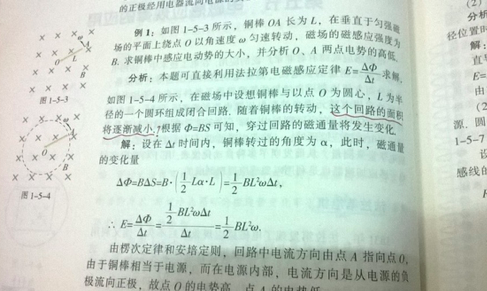 的正极经用电器流向电源的
例1：如图1-5-3所示，铜棒OA长为L，在垂直于匀强磁
场的平面上绕点O以角速度ω匀速转动，磁场的磁感应强度为
B. 求铜棒中感应电动势的大小，并分析O、A两点电势的高低.
分析：本题可直接利用法拉第电磁感应定律E=ΔΦ/Δt求解.
如图1-5-4所示，在磁场中设想铜棒与以点O为圆心，L为半
径的一个圆环组成闭合回路. 随着铜棒的转动，这个回路的面积
将逐渐减小，根据Φ=BS可知，穿过回路的磁通量将发生变化.
解：设在Δt时间内，铜棒转过的角度为α，此时，磁通量
的变化量
ΔΦ=BΔS=B·(1/2 Lα·L)=1/2 BL²ωΔt，
∴ E=ΔΦ/Δt=(1/2 BL²ωΔt)/Δt=1/2 BL²ω.
由楞次定律和安培定则，回路中电流方向由点A指向点O，
由于铜棒相当于电源，而在电源内部，电流方向是从电源的负
极流向正极，故点O的电势高，点A的电势低
图1-5-3
图1-5-4
L
O
B
A
分析
径位置时
直
E=
由
(2)
源. 圆
1-5-7
感线的